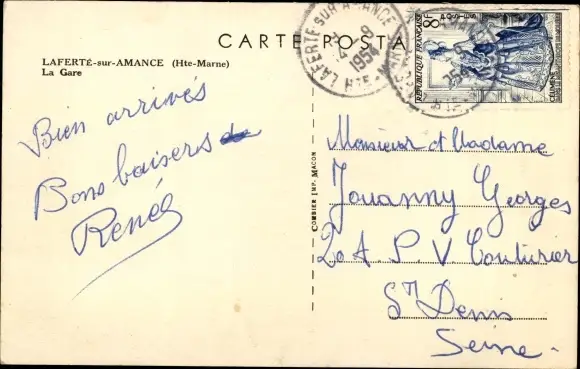 CARTE POSTALE
LAFERTÉ-sur-AMANCE (Hte-Marne)
La Gare
LAFERTÉ-SUR-AMANCE
1954
HTE-MARNE
8F
REPUBLIQUE FRANÇAISE
CELIMENE
Bien arrivés
Bons baisers de
Renée
COMBIER IMP. MACON
Monsieur et Madame
Jouanny Georges
20 A. P. V. Couturier
St Denis
Seine.